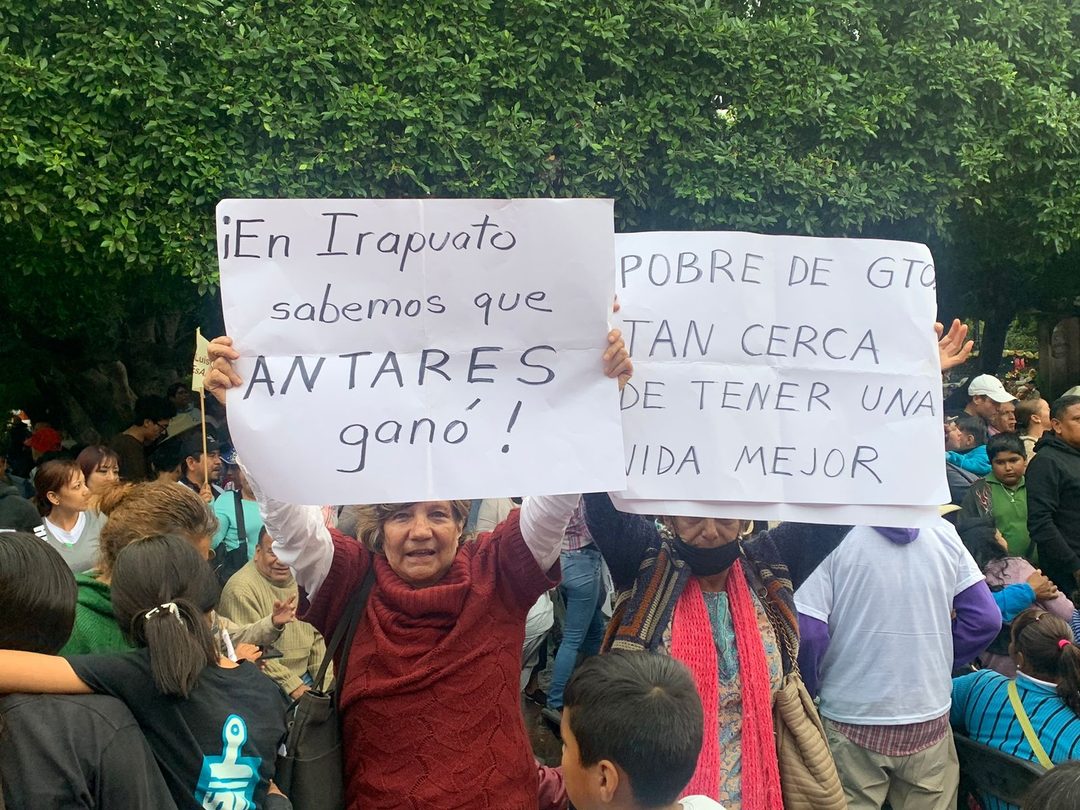 ¡En Irapuato
sabemos que
ANTARES
ganó!
POBRE DE GTO
TAN CERCA
DE TENER UNA
VIDA MEJOR
Luis